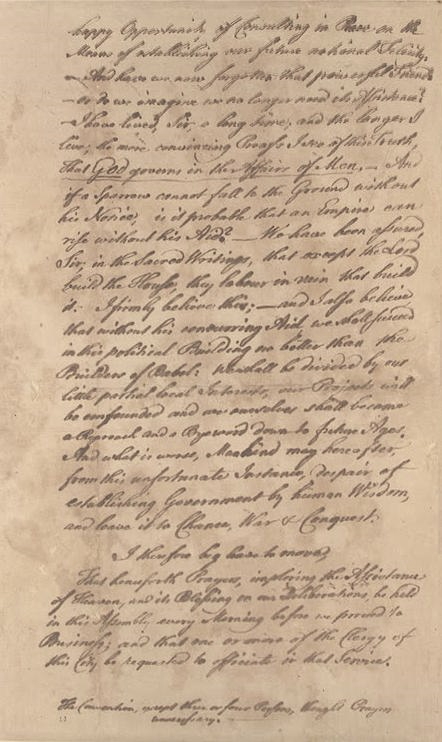 happy Opportunity of Consulting in Peace on the
Means of establishing our future national Felicity.
— And have we now forgotten that powerful Friend
— or do we imagine we no longer need its Assistance?
— I have lived, Sir, a long time; and the longer I
live, the more convincing Proofs I see of this Truth,
That GOD governs in the Affairs of Men. — And
if a Sparrow cannot fall to the Ground without
his Notice, is it probable that an Empire can
rise without his Aid? — We have been assured,
Sir, in the Sacred Writings, that except the Lord
build the House, they labour in vain that build
it. I firmly believe this; — and I also believe
that without his concurring Aid, we shall succeed
in this political Building no better than the
Builders of Babel: we shall be divided by our
little partial local Interests, our Projects will
be confounded and we ourselves shall become
a Reproach and a Byeword down to future Ages.
And what is worse, Mankind may hereafter,
from this unfortunate Instance, despair of
establishing Government by human Wisdom,
and leave it to Chance, War & Conquest.
I therefore beg leave to move,
That henceforth Prayers, imploring the Assistance
of Heaven, and its Blessing on our Deliberations, be held
in this Assembly every Morning before we proceed to
Business; and that one or more of the Clergy of
this City be requested to officiate in that Service.
The Convention, except three or four Persons, thought Prayers
unnecessary.